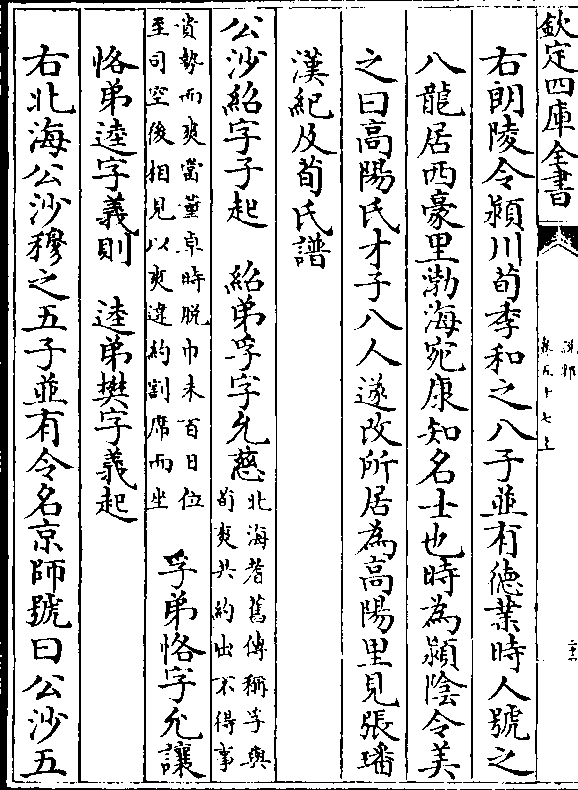 欽定四庫全書
說郛
卷五十七上
右朗陵令潁川荀季和之八子並有德業時人號之
八龍居西豪里渤海宛康知名士也時為潁陰令美
之曰高陽氏才子八人遂改所居為高陽里見張璠
漢紀及荀氏譜
公沙紹字子起　紹弟孚字允慈北海耆舊傳稱孚與
荀爽共約出不得事
貲勢而爽當董卓時脱巾未百日位
至司空後相見以爽違約割席而坐　孚弟恪字允讓
恪弟逵字義則　逵弟樊字義起
右北海公沙穆之五子並有令名京師號曰公沙五